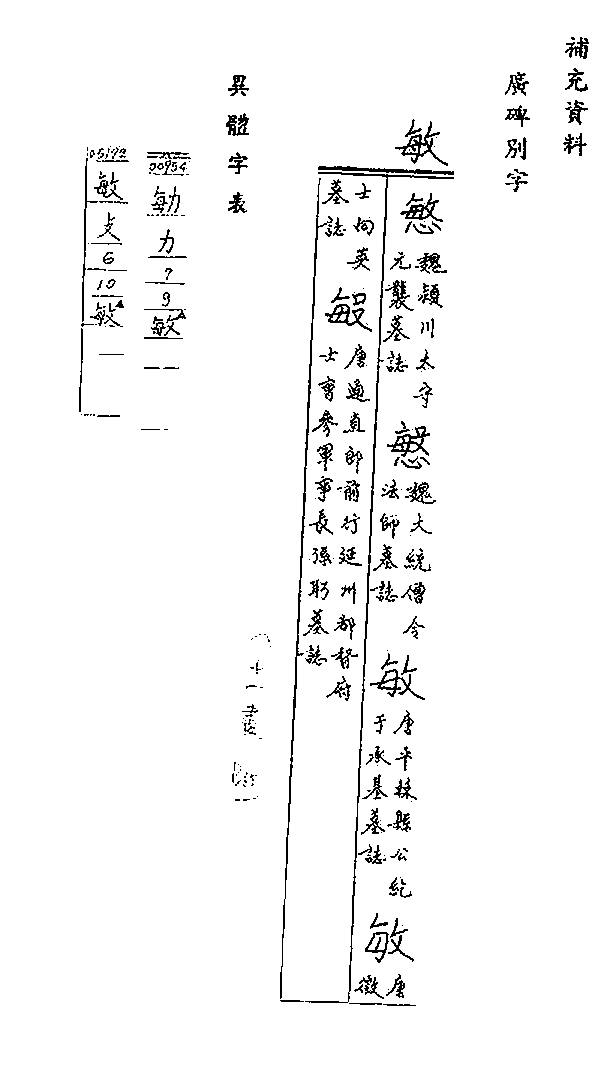 補充資料
廣碑別字
敏
慜 魏潁川太守元襲墓誌 魏大統僧令法師墓誌 敏 唐平棘縣公紇于承基墓誌 敏 唐徵
士向英墓誌 唐通直郎前行延州都督府士曹參軍事長孫墓誌
異體字表
00954
勄
力
7
9
敏
05192
敏
攴
6
10
敏
十一畫